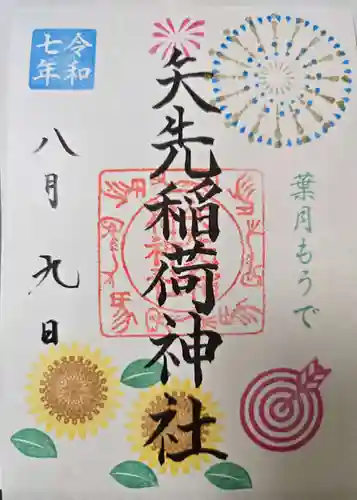 葉月もうで
矢先稲荷神社
令和
七年
八月九日